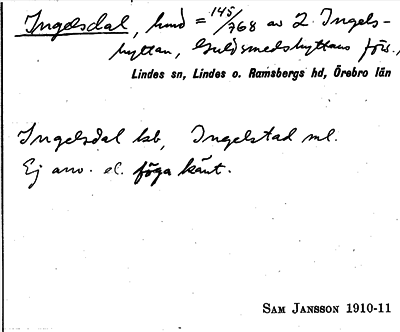 Ingelsdal, hmd = 145/768 av 2 Ingels-
hyttan, Guldsmedshyttans förs.,
Lindes sn, Lindes o. Ramsbergs hd, Örebro län
Ingelsdal lsb, Ingelstad ml.
Ej anv. el. föga känt.
SAM JANSSON 1910-11